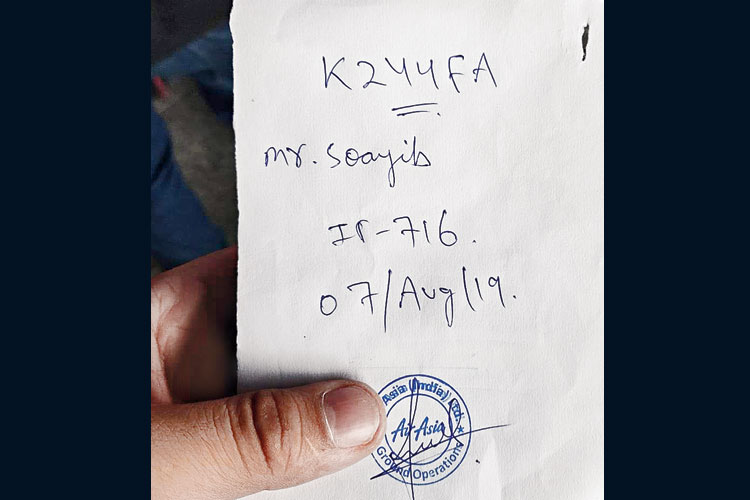 K244FA
mr. Soayib
I5-716.
07/Aug/19.
Asia (India) Ltd.
AirAsia
Ground Operations